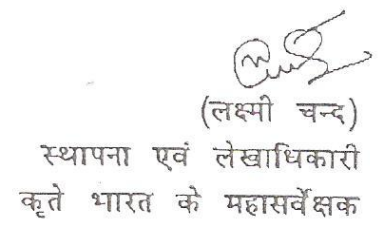 (लक्ष्मी चन्द)
स्थापना एवं लेखाधिकारी
कृते भारत के महासर्वेक्षक